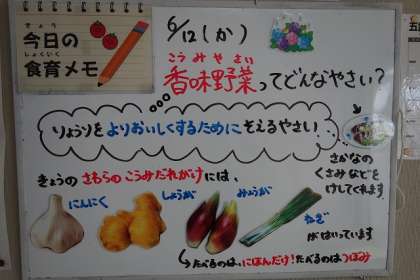 きょう
今日の
しょくいく
食育メモ
6/12(か)
こうみやさい
香味野菜ってどんなやさい?
りょうりをよりおいしくするためにそえるやさい!
さかなの
くさみなどを
けしてくれます。
きょうの さわらの こうみだれがけには、
にんにく
しょうが
みょうが
ねぎ
がはいっています
たべるのは、にほんだけ!たべるのはつぼみ